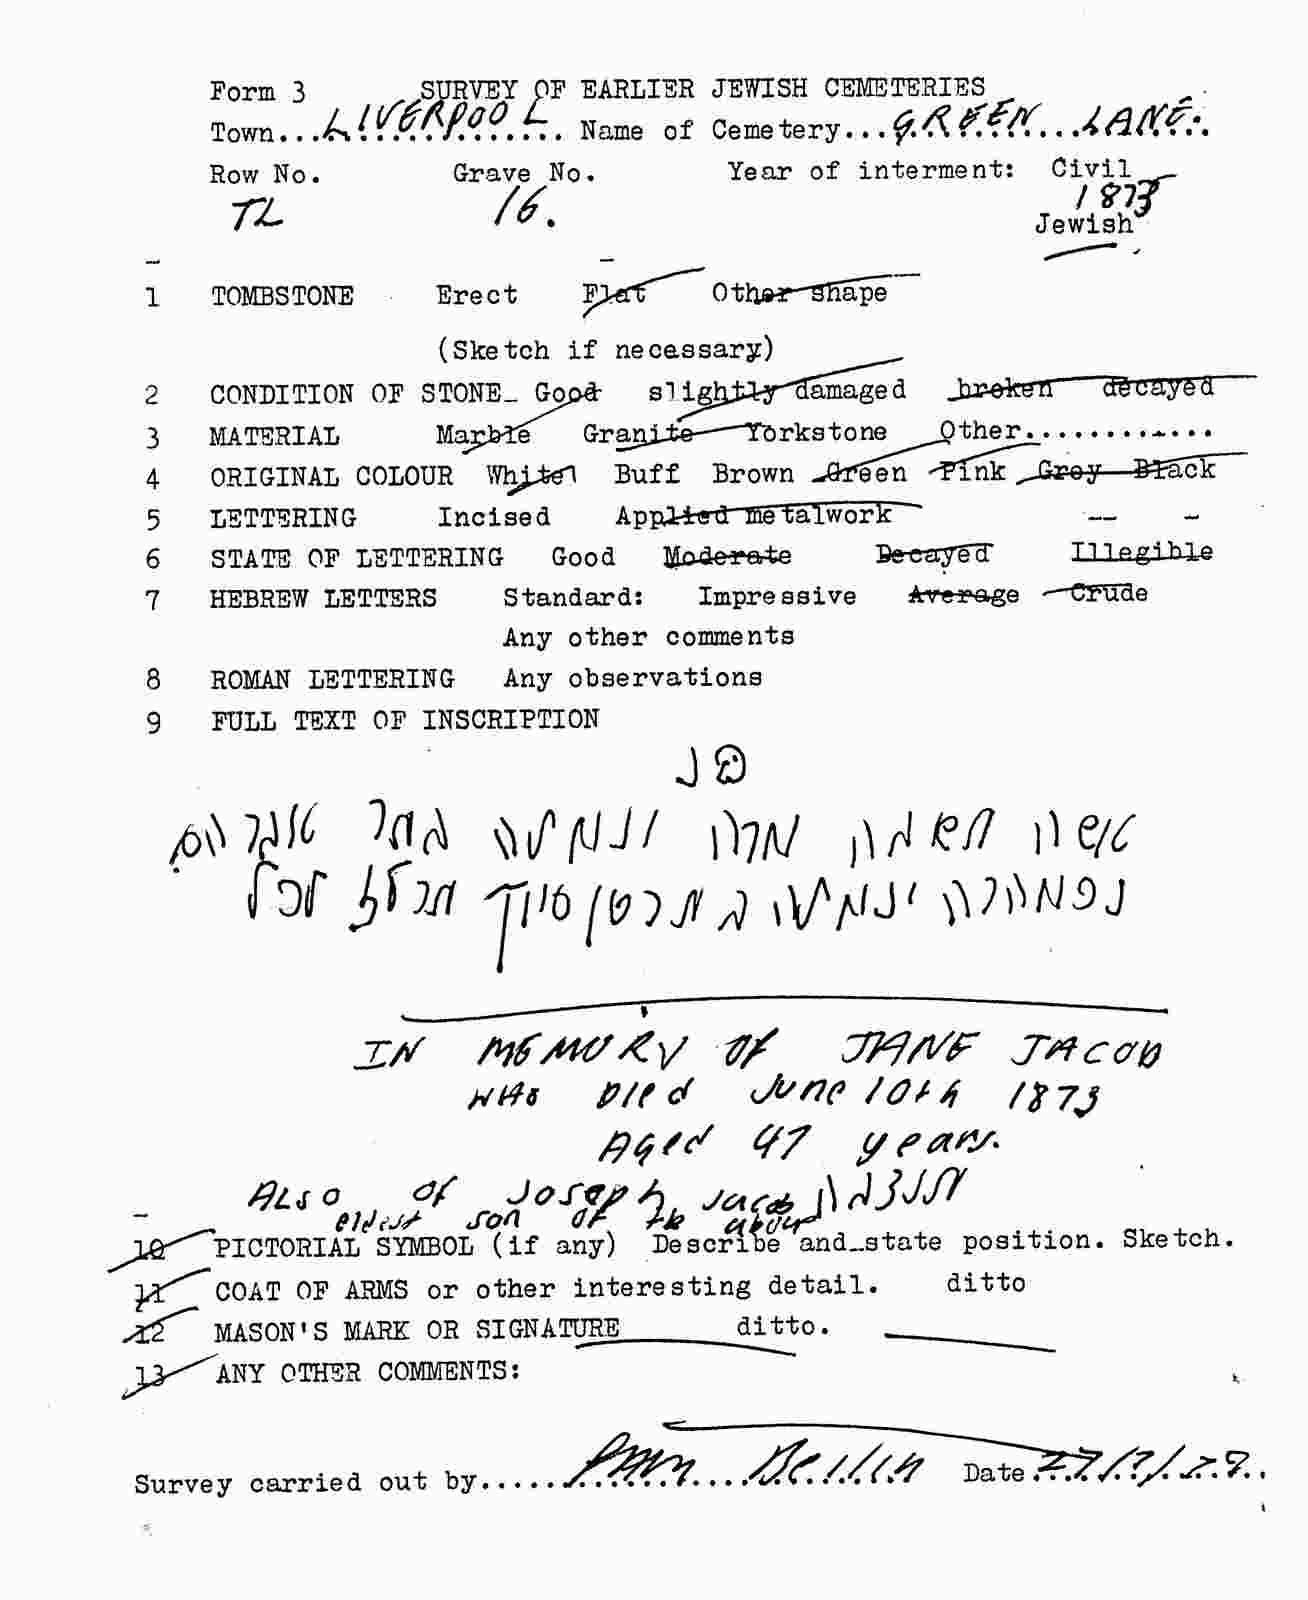 Form 3 SURVEY OF EARLIER JEWISH CEMETERIES
Town...LIVERPOOL... Name of Cemetery...GREEN LANE.
Row No. Grave No. Year of interment: Civil
TL 16. 1873
Jewish
1 TOMBSTONE Erect Flat Other shape
(Sketch if necessary)
2 CONDITION OF STONE Good slightly damaged broken decayed
3 MATERIAL Marble Granite Yorkstone Other............
4 ORIGINAL COLOUR White Buff Brown Green Pink Grey Black
5 LETTERING Incised Applied metalwork
6 STATE OF LETTERING Good Moderate Decayed Illegible
7 HEBREW LETTERS Standard: Impressive Average Crude
Any other comments
8 ROMAN LETTERING Any observations
9 FULL TEXT OF INSCRIPTION
פנ
אשה מרה אברהם
IN MEMORY OF JANE JACOB
WHO Died June 10th 1873
Aged 47 years.
ALSO OF Joseph Jacob
eldest son of the above
10 PICTORIAL SYMBOL (if any) Describe and state position. Sketch.
11 COAT OF ARMS or other interesting detail. ditto
12 MASON'S MARK OR SIGNATURE ditto.
13 ANY OTHER COMMENTS:
Survey carried out by...... Berlin Date